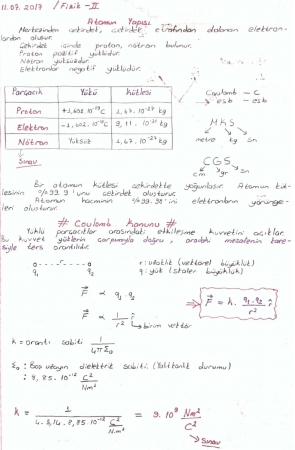 11.07.2017 / Fizik - II
Atomun Yapısı
Merkezinden çekirdek, çekirdek etrafından dolanan elektron-
lardan oluşur.
Çekirdek içinde proton, nötron bulunur.
Proton pozitif yüklüdür.
Nötron yüksüzdür.
Elektronlar negatif yüklüdür.
Parçacık Yükü kütlesi
Proton +1,602. 10⁻¹⁹ C 1,67. 10⁻²⁷ kg
Elektron -1,602. 10⁻¹⁹ C 9,11. 10⁻³¹ kg
Nötron Yüksüz 1,67. 10⁻²⁷ kg
Sınav
Coulomb - C
esb - esb
MKS
metre kg sn
CGS
cm gr sn
Bir atomun kütlesi çekirdekte yoğunlaşır. Atomun küt-
lesinin %99.9'unu çekirdek oluşturur.
Atomun hacminin %99.98'ini elektronların yörünge-
leri oluşturur.
# Coulomb Kanunu #
Yüklü parçacıklar arasındaki etkileşme kuvvetini açıklar.
Bu kuvvet yüklerin çarpımıyla doğru, aradaki mesafenin kare-
siyle ters orantılıdır.
r r: uzaklık (vektörel büyüklük)
q₁ q₂ q: yük (skaler büyüklük)
F⃗ ∝ q₁ q₂
F⃗ = k. q₁.q₂ / r² r̂
F⃗ ∝ 1/r² r̂ → birim vektör
k = orantı sabiti 1/4πε₀
ε₀: Boş uzayın dielektrik sabiti (Yalıtkanlık durumu)
: 8,85.10⁻¹² C²/Nm²
k = 1 / 4.3,14.8,85.10⁻¹² C²/Nm² = 9.10⁹ Nm²/C²
Sınav